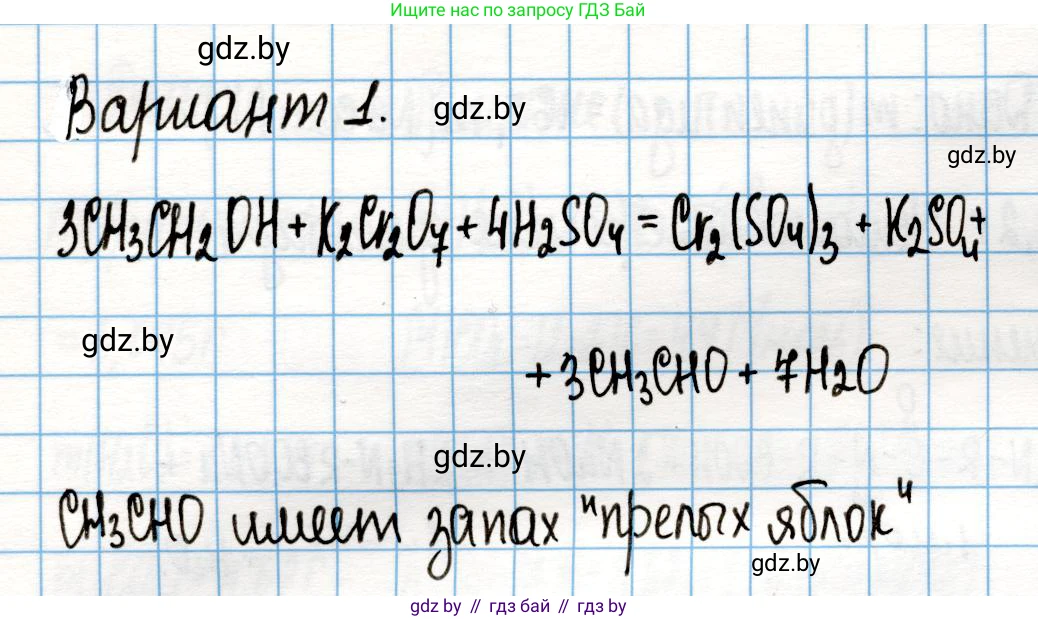 Ищите нас по запросу ГДЗ Бай
gdz.by
Вариант 1. gdz.by
gdz.by
3CH₃CH₂OH + K₂Cr₂O₇ + 4H₂SO₄ = Cr₂(SO₄)₃ + K₂SO₄ +
gdz.by
+ 3CH₃CHO + 7H₂O
gdz.by
CH₃CHO имеет запах "прелых яблок"
gdz.by
gdz.by // гдз бай // гдз by